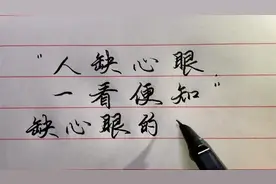 “人缺心眼，
一看便知”
缺心眼的